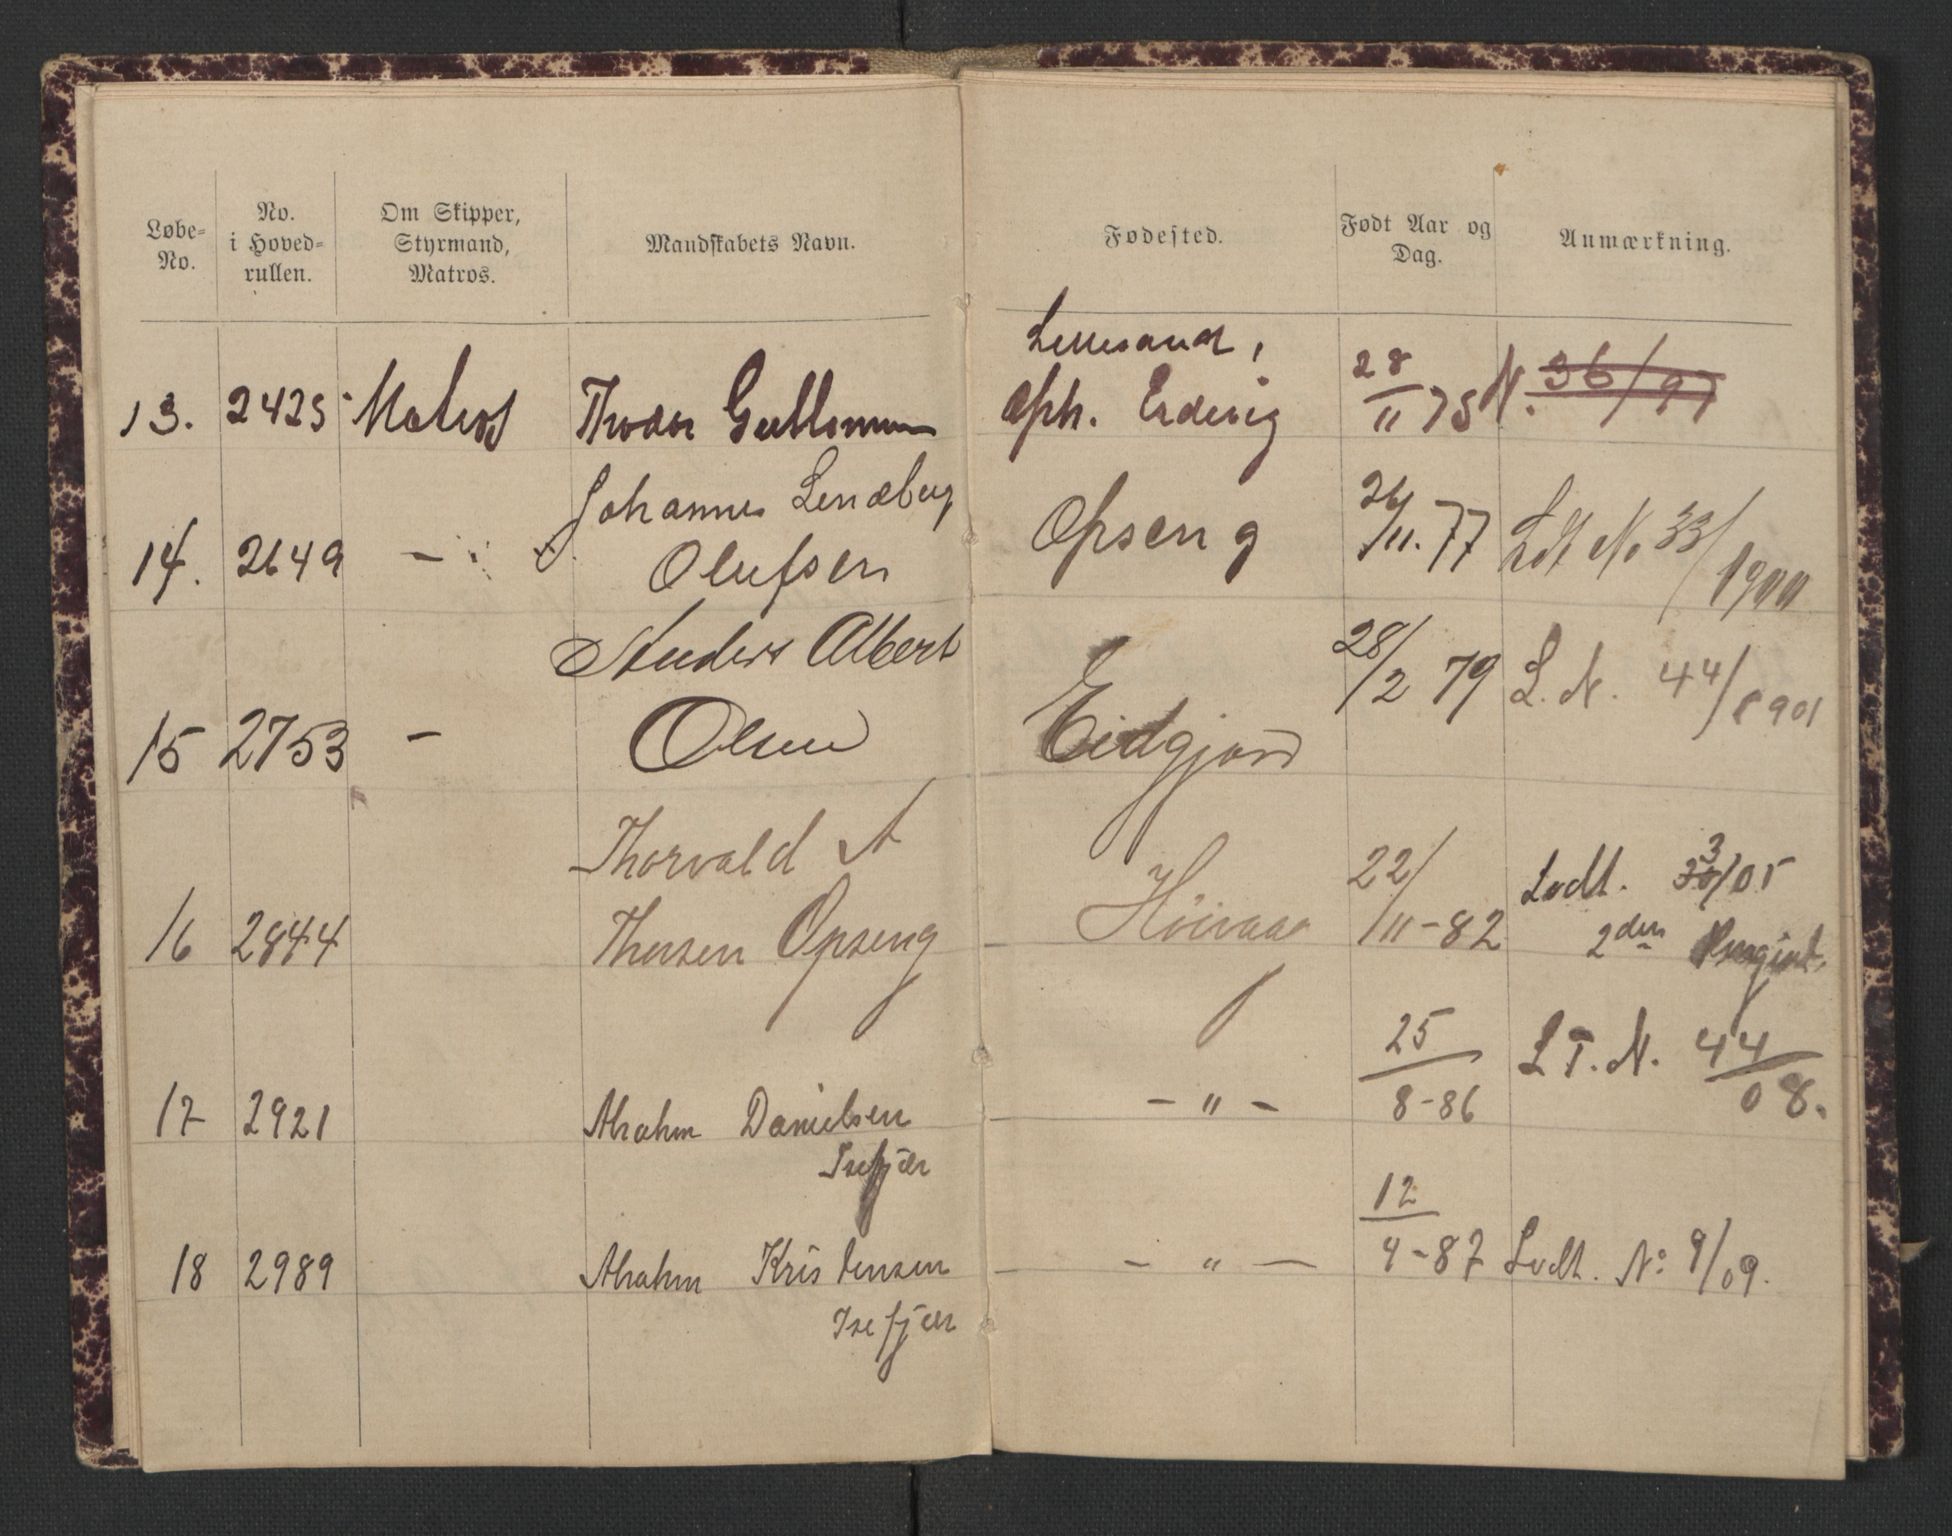 Løbe-
No.
No.
i Hoved-
rullen.
Om Skipper,
Styrmand,
Matros.
Mandskabets Navn.
Fødested.
Født Aar og
Dag.
Anmærkning.
Lillesand,
13. 2425 Matros Thodor Gullomsen oph. Eidevig 28/11 75 N. 36/97
Johannes Lendberg
14. 2649 - Olufsen Opseng 26/11. 77 Ldt No 33/1900
Anders Albert
15 2753 - Olsen Eidgjord 28/2 79 L. N. 44/1901
Thorvald A
16 2844 Thersen Opseng Höivaag 22/11-82 Lodt. 3/05
2den
17 2921 Abrahm Danielsen - " - 25/8-86 L T. N. 44/08.
Isefjær
18 2989 Abrahm Kristensen - " - 12/4-87 Lodt. No 9/09.
Isefjær